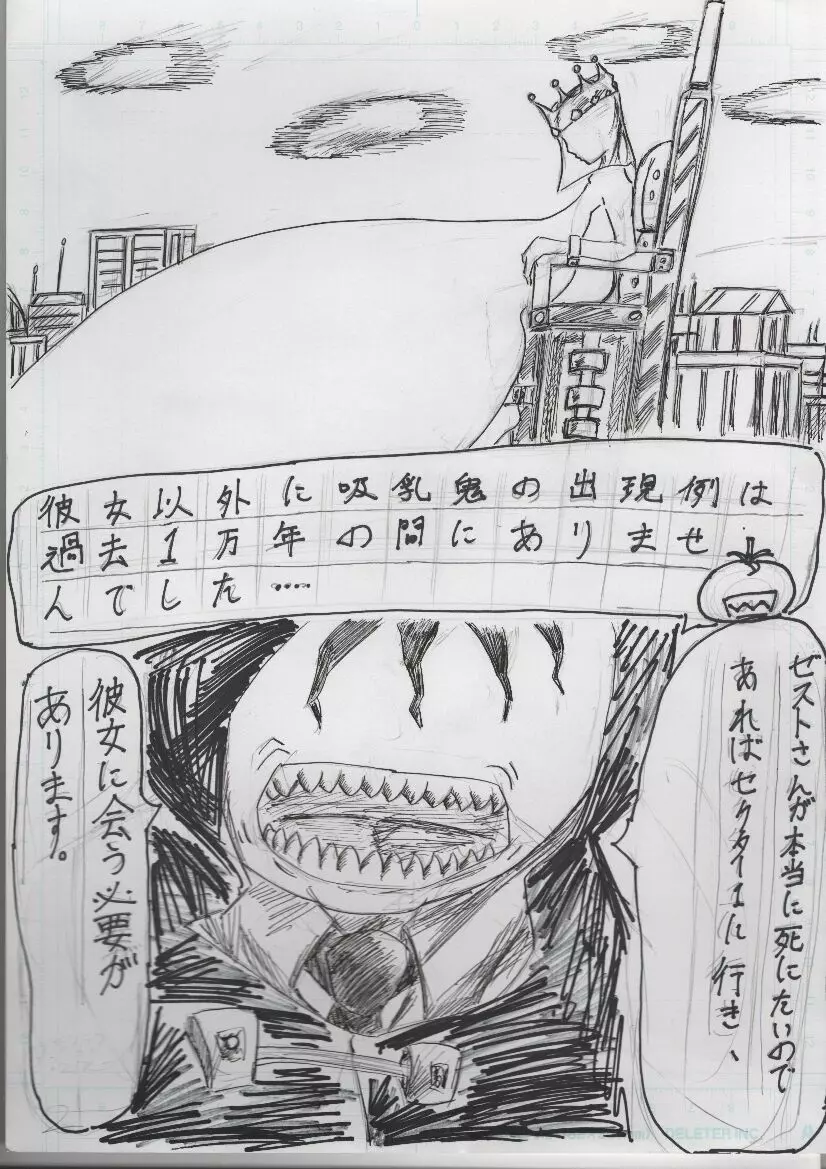 彼女以外に吸乳鬼の出現例は
過去1万年の間にありませ
んでした……
ゼストさんが本当に死にたいので
あればセクター1に行き、
彼女に会う必要が
あります。
DELETER INC.